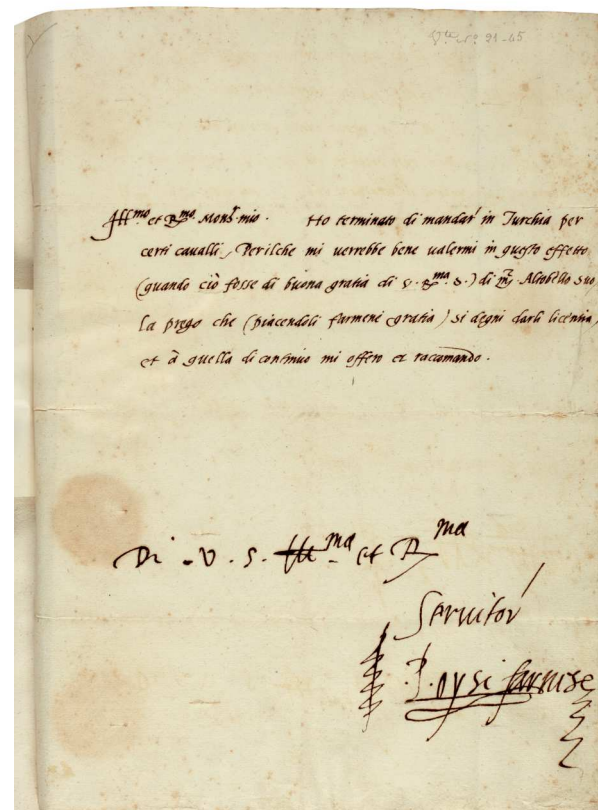 Ill.mo et R.mo Mons.r mio. Ho terminato di mandar' in Turchia per
certi cavalli, Perilche mi verrebbe bene valermi in questo effetto
(quando ciò fosse di buona gratia di V. R.ma S.) di m. Altobello suo
La prego che (piacendoli farmene gratia) si degni darli licentia,
et à quella di continuo mi offero et raccomando.
Di .V. S. Ill.ma et R.ma
Servitor
P. Loysi farnese